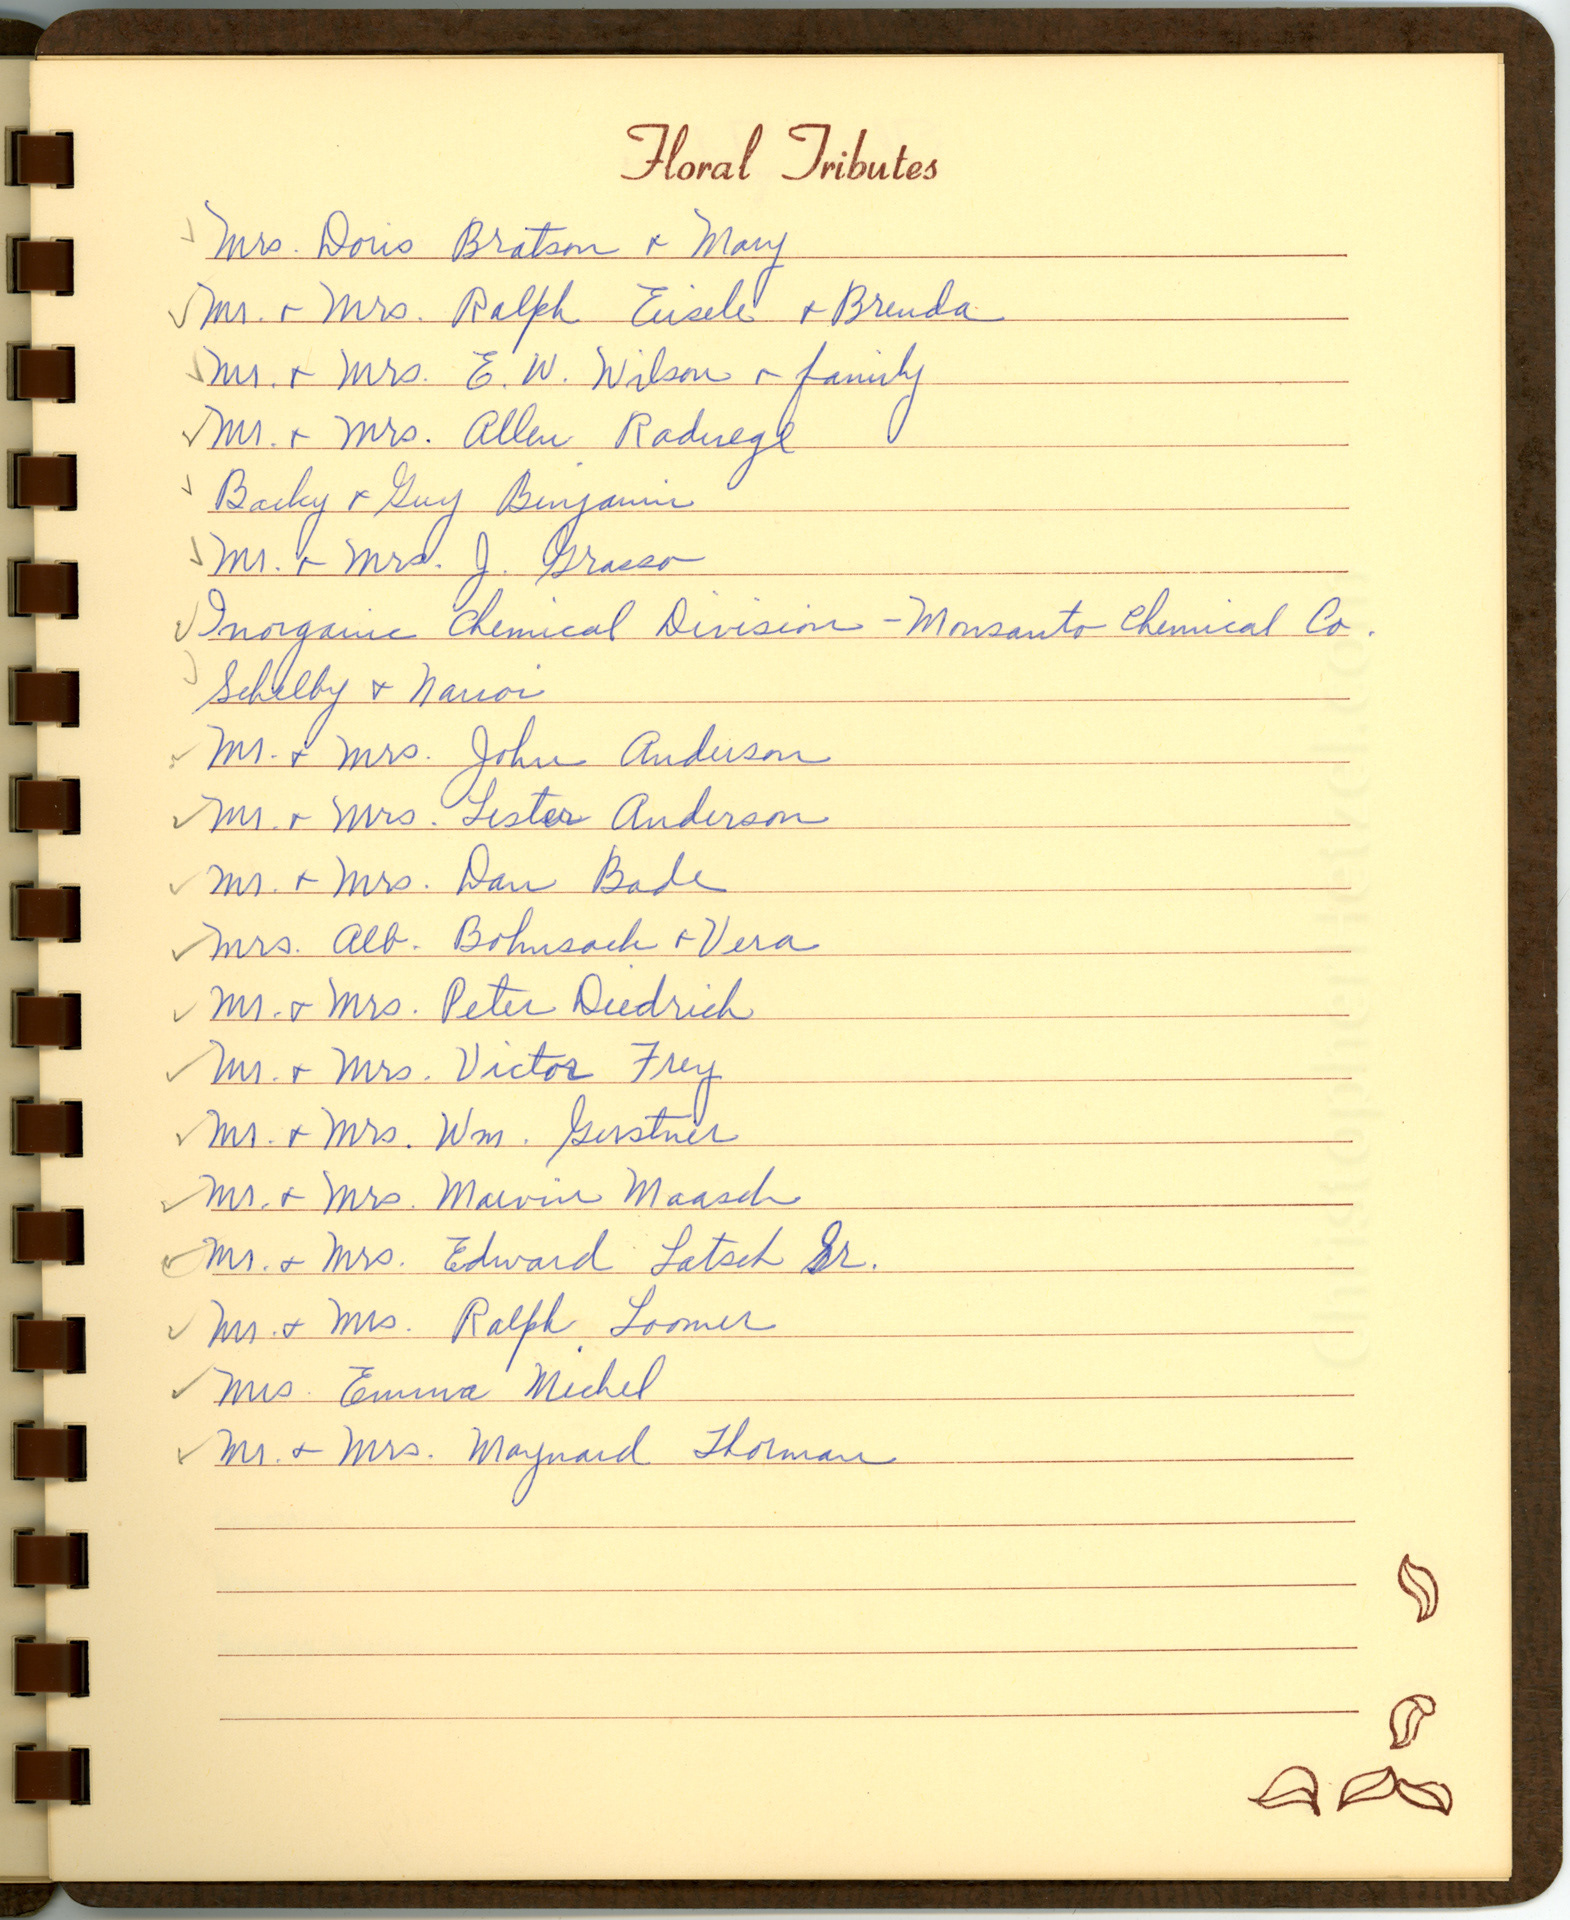 Floral Tributes
Mrs. Doris Bratson & Mary
Mr. & Mrs. Ralph Eisele & Brenda
Mr. & Mrs. E. W. Wilson & family
Mr. & Mrs. Allen Raduege
Backy & Guy Binjamin
Mr. & Mrs. J. Grasso
Inorganic Chemical Division - Monsanto Chemical Co.
Schelby &
Mr. & Mrs. John Anderson
Mr. & Mrs. Lester Anderson
Mr. & Mrs. Dan Bade
Mrs. Alb. Bohnsack & Vera
Mr. & Mrs. Peter Diedrich
Mr. & Mrs. Victor Frey
Mr. & Mrs. Wm. Gerstner
Mr. & Mrs. Marvin Maasch
Mr. & Mrs. Edward Latsch Sr.
Mr. & Mrs. Ralph Loomer
Mrs. Emma Michel
Mr. & Mrs. Maynard Thorman